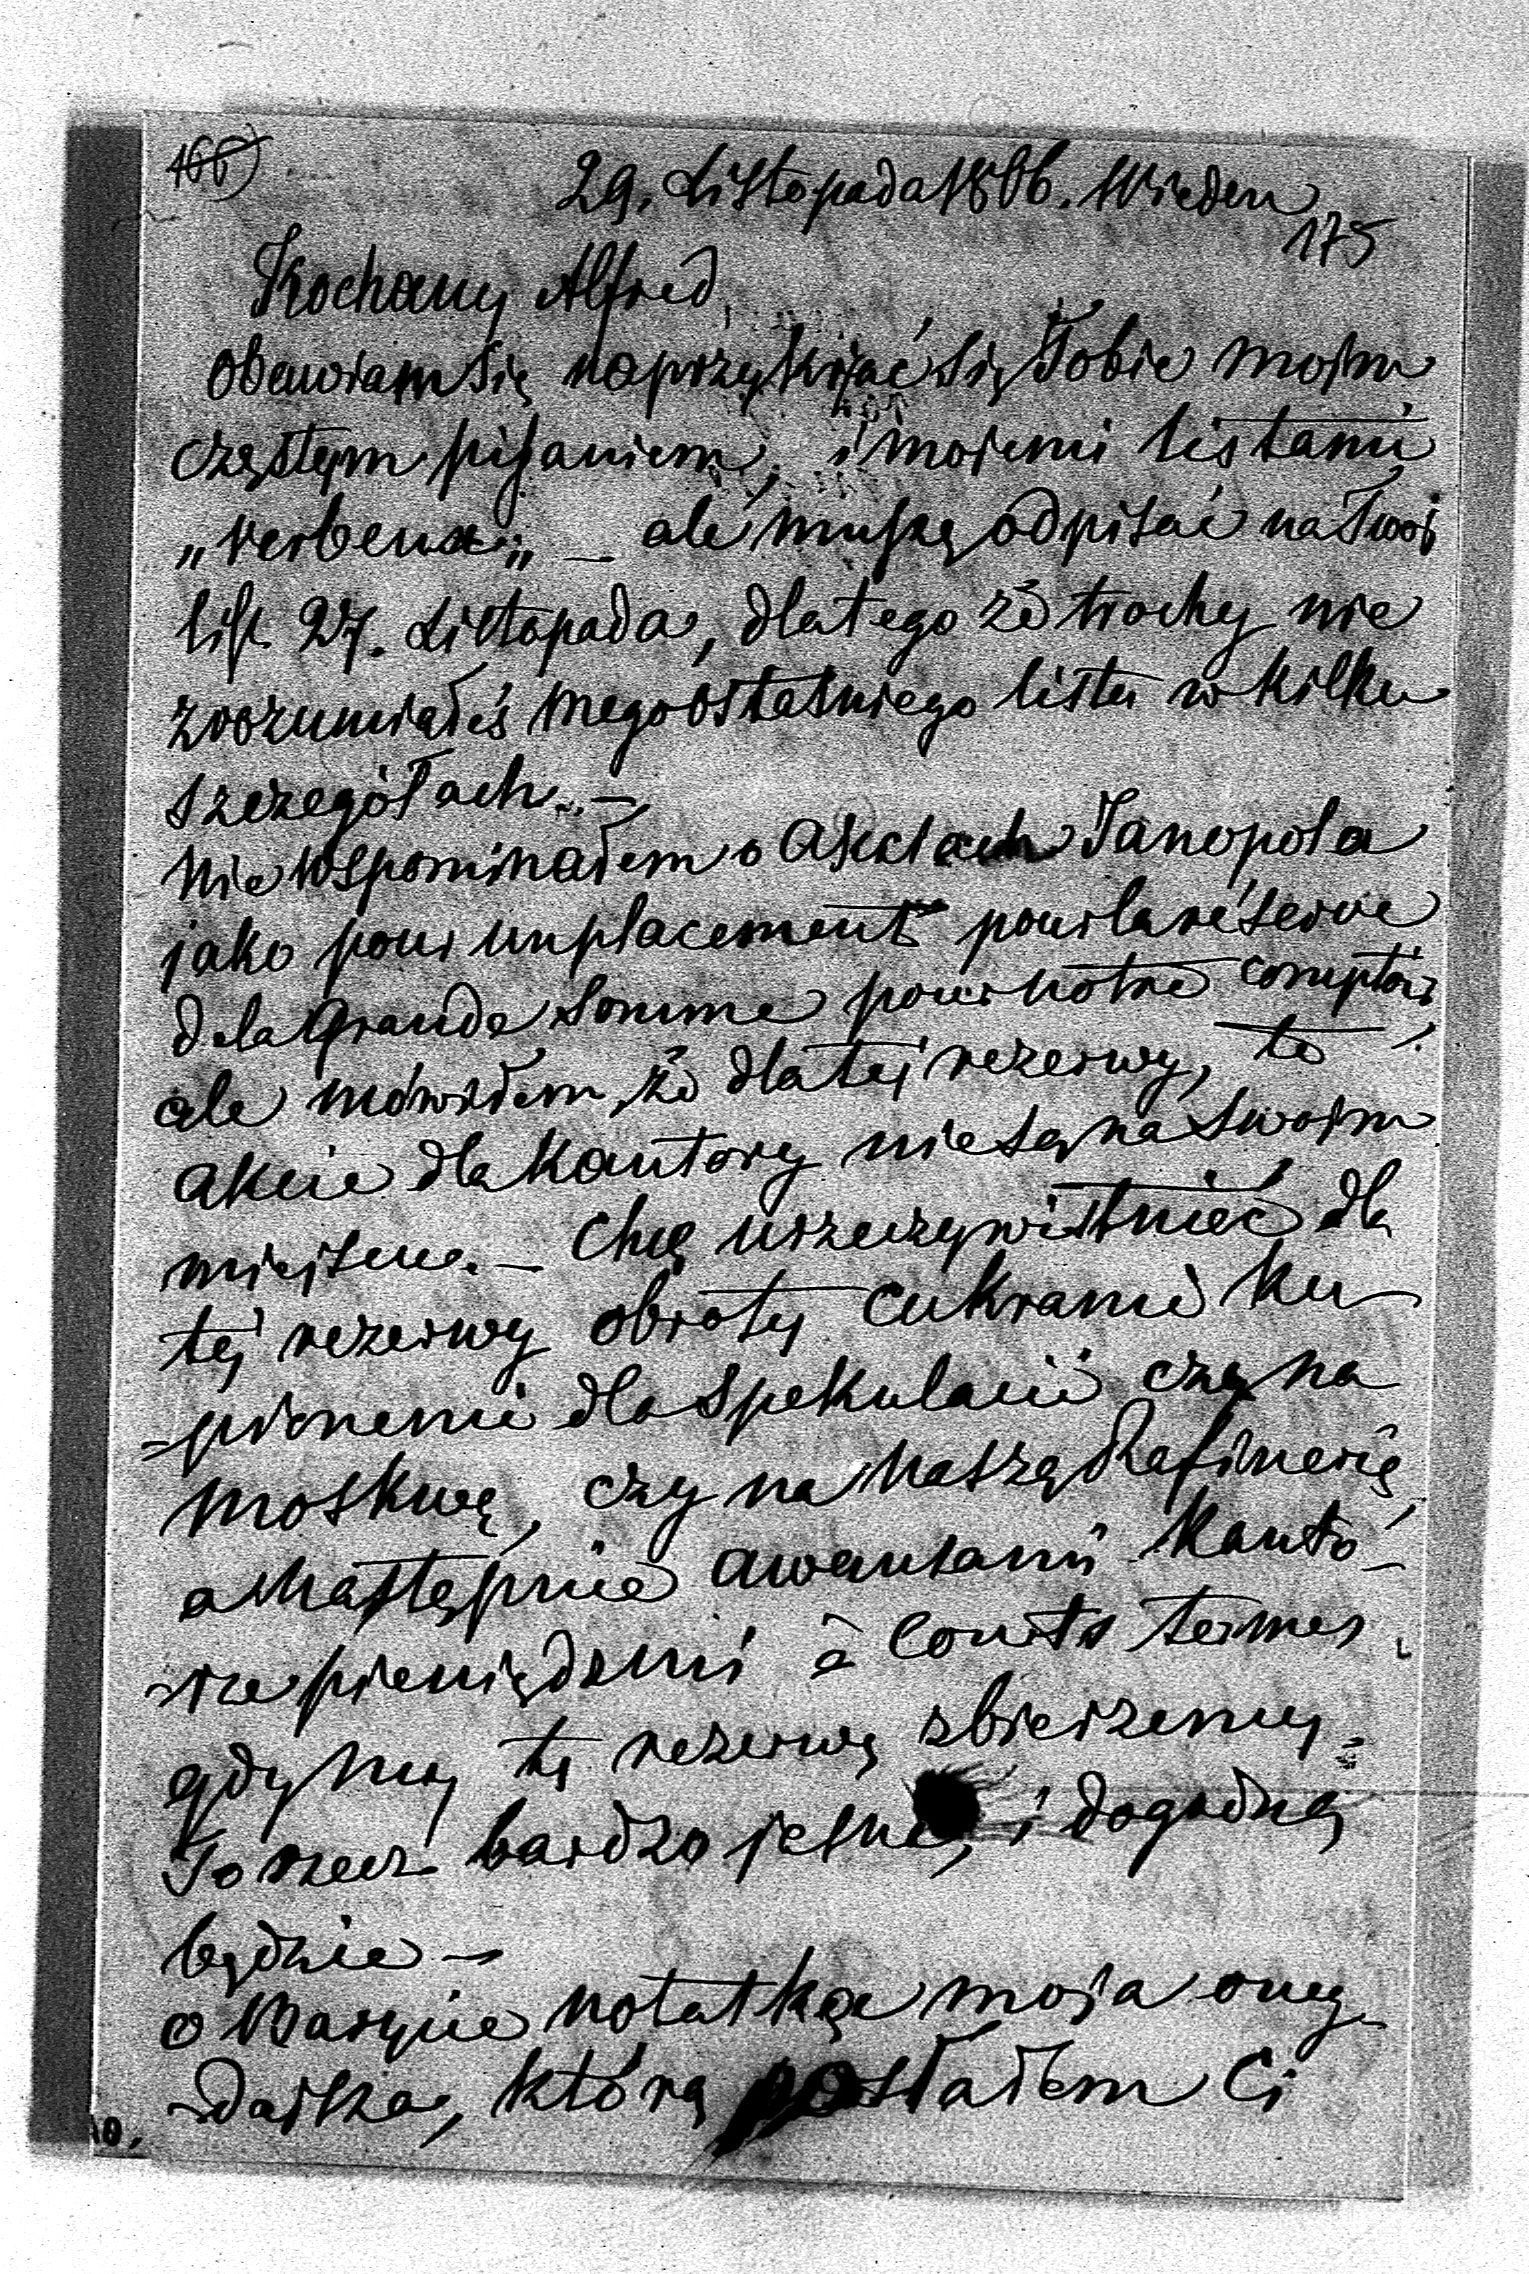 166
29. Listopada 1886. Wiedeń
175
Kochany Alfred,
obawiam się naprzykrzać się Tobie moim
częstym pisaniem, i mojemi listami
„verbeux„ — ale muszę odpisać na Twój
list 27. Listopada, dlatego że trochę nie
zrozumiałeś mego ostatniego listu w kilku
szczegółach. —
Nie wspominałem o akciach Janopola
jako pour un placement pour la réserve
de la grande somme pour notre comptoir
ale mówiłem, że dla tej rezerwy, te
akcie dla kantory nie są na swoim
miejscu. — Chcę urzeczywistnieć dla
tej rezerwy obroty cukrami ku-
=pionemi dla spekulacii czy na
Moskwę, czy na naszą Rafinerię,
a następnie awansami kanto-
rze pieniędzmi à courts termes
gdy my tę rezerwę zbierzemy.
To rzecz bardzo jasna, i dogodną
będzie —
o Barycie notatkę moja oneg-
dajsza, którą posłałem Ci